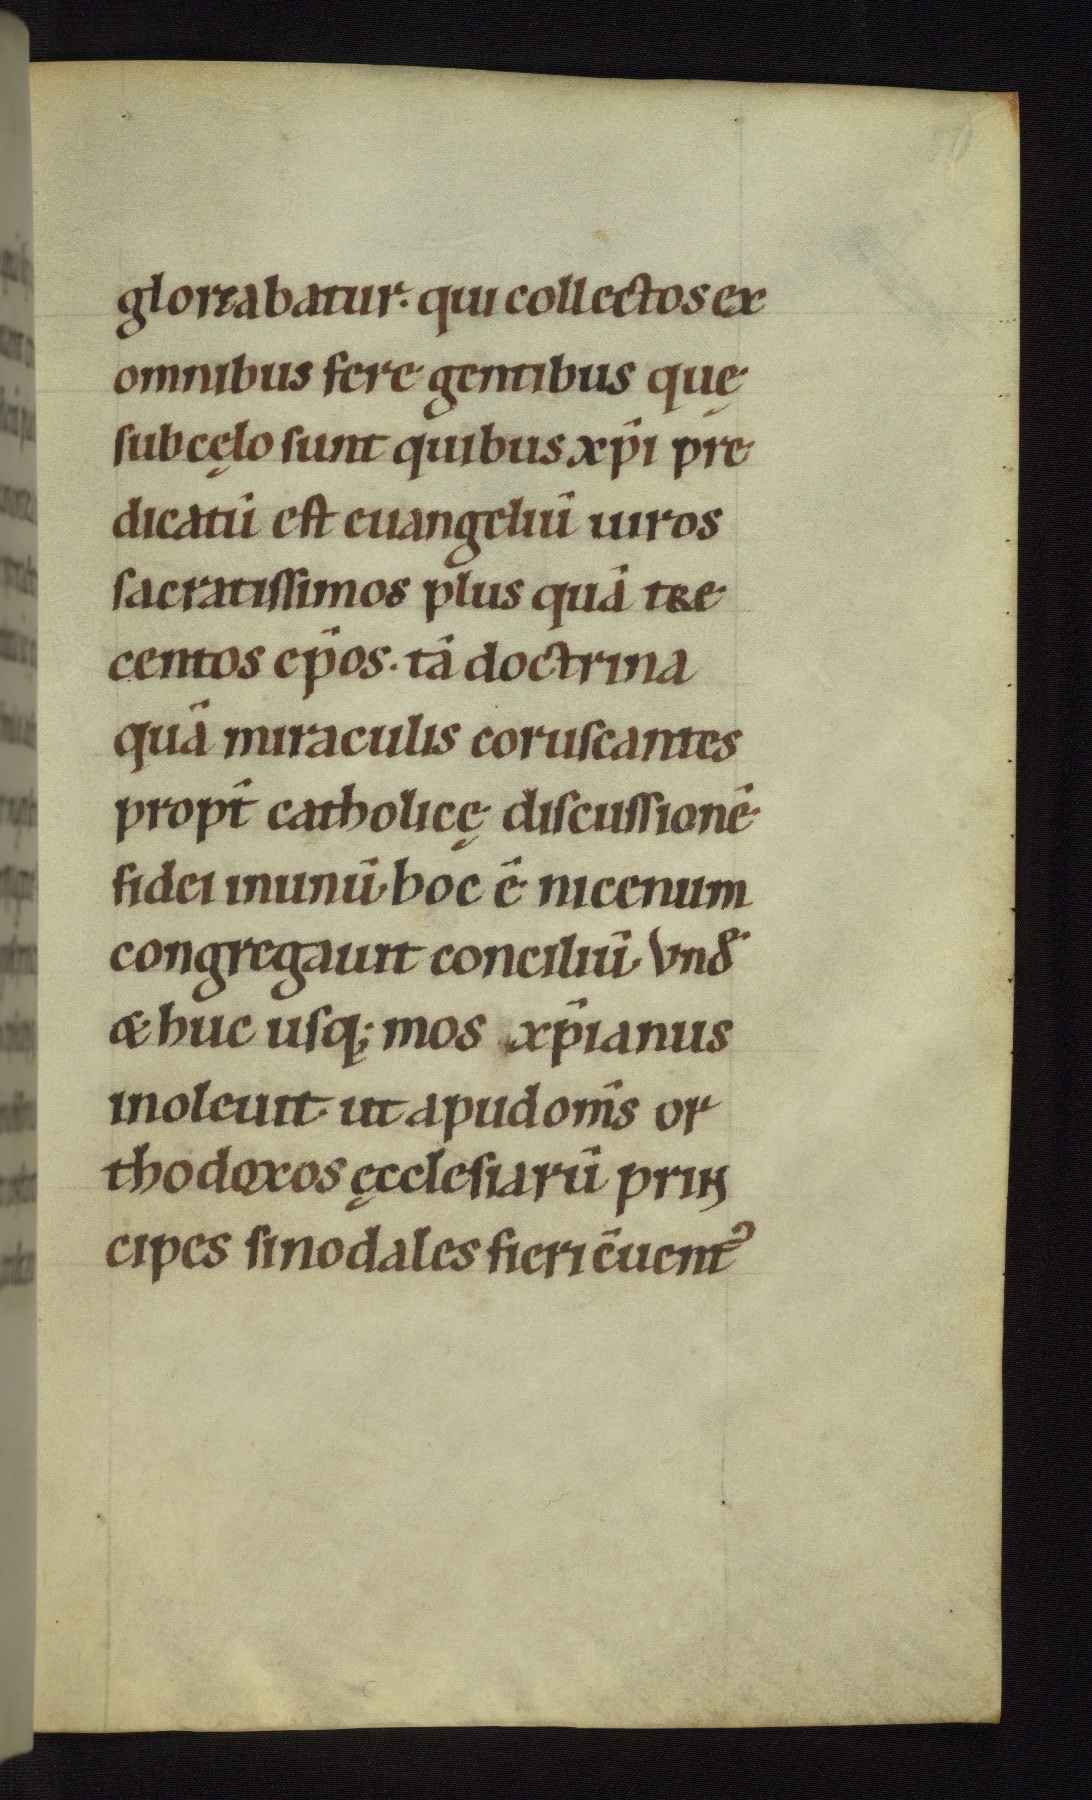 gloriabatur. qui collectos ex
omnibus fere gentibus quę
sub cęlo sunt quibus xp̄i pre
dicatū est euangeliū uiros
sacratissimos plus quā tre
centos ep̄os. tā doctrina
quā miraculis coruscantes
propt̄ catholicę discussionē
fidei in unū. hoc ē nicenum
congregauit conciliū. Vnd̄
& huc usq; mos xp̄ianus
inoleuit. ut apud om̄s or
thodoxos ęcclesiarū prin
cipes sinodales fieri c̄uent᾿